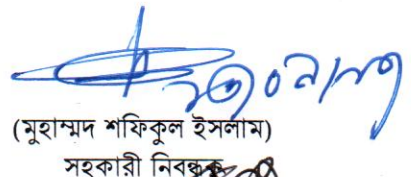 (মুহাম্মদ শফিকুল ইসলাম)
সহকারী নিবন্ধক